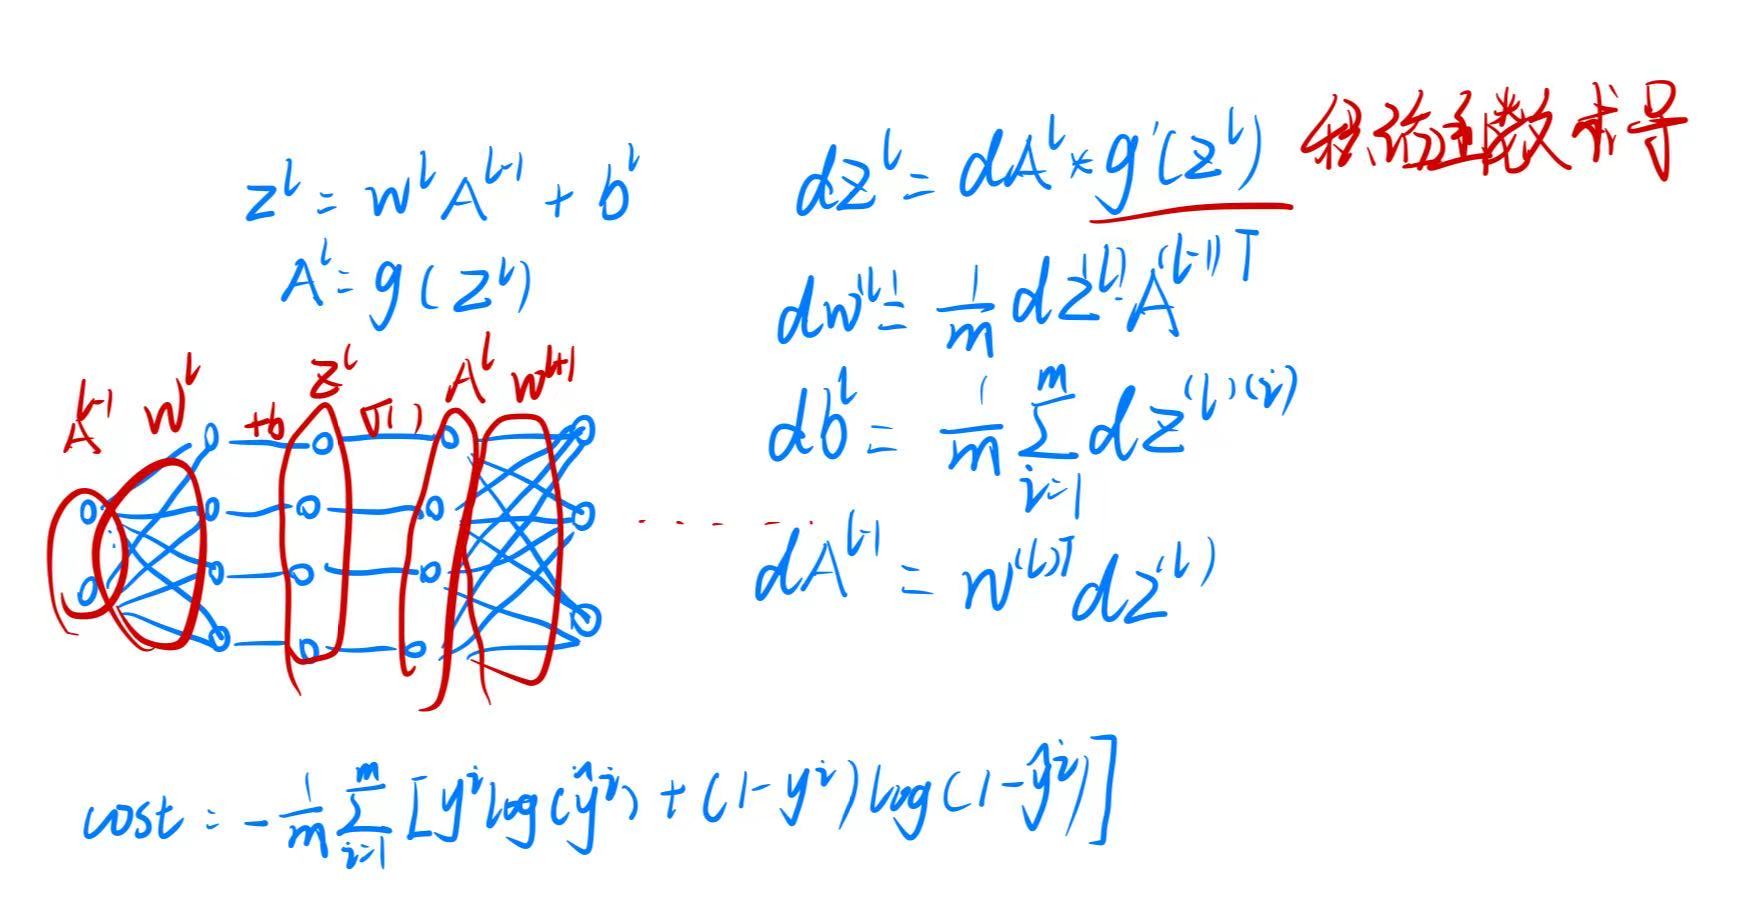 z^l = w^l A^{l-1} + b^l
A^l = g(z^l)
dz^l = dA^l * g'(z^l) 函数求导
dw^{(l)} = \frac{1}{m} dz^{(l)} · A^{(l-1)T}
db^l = \frac{1}{m} \sum_{i=1}^{m} dz^{(l)(i)}
dA^{l-1} = w^{(l)T} dz^{(l)}
A^{l-1} w^l +b z^l σ( ) A^l w^{l+1}
cost = -\frac{1}{m} \sum_{i=1}^{m} [y^i log(ŷ^i) + (1-y^i) log(1-ŷ^i)]